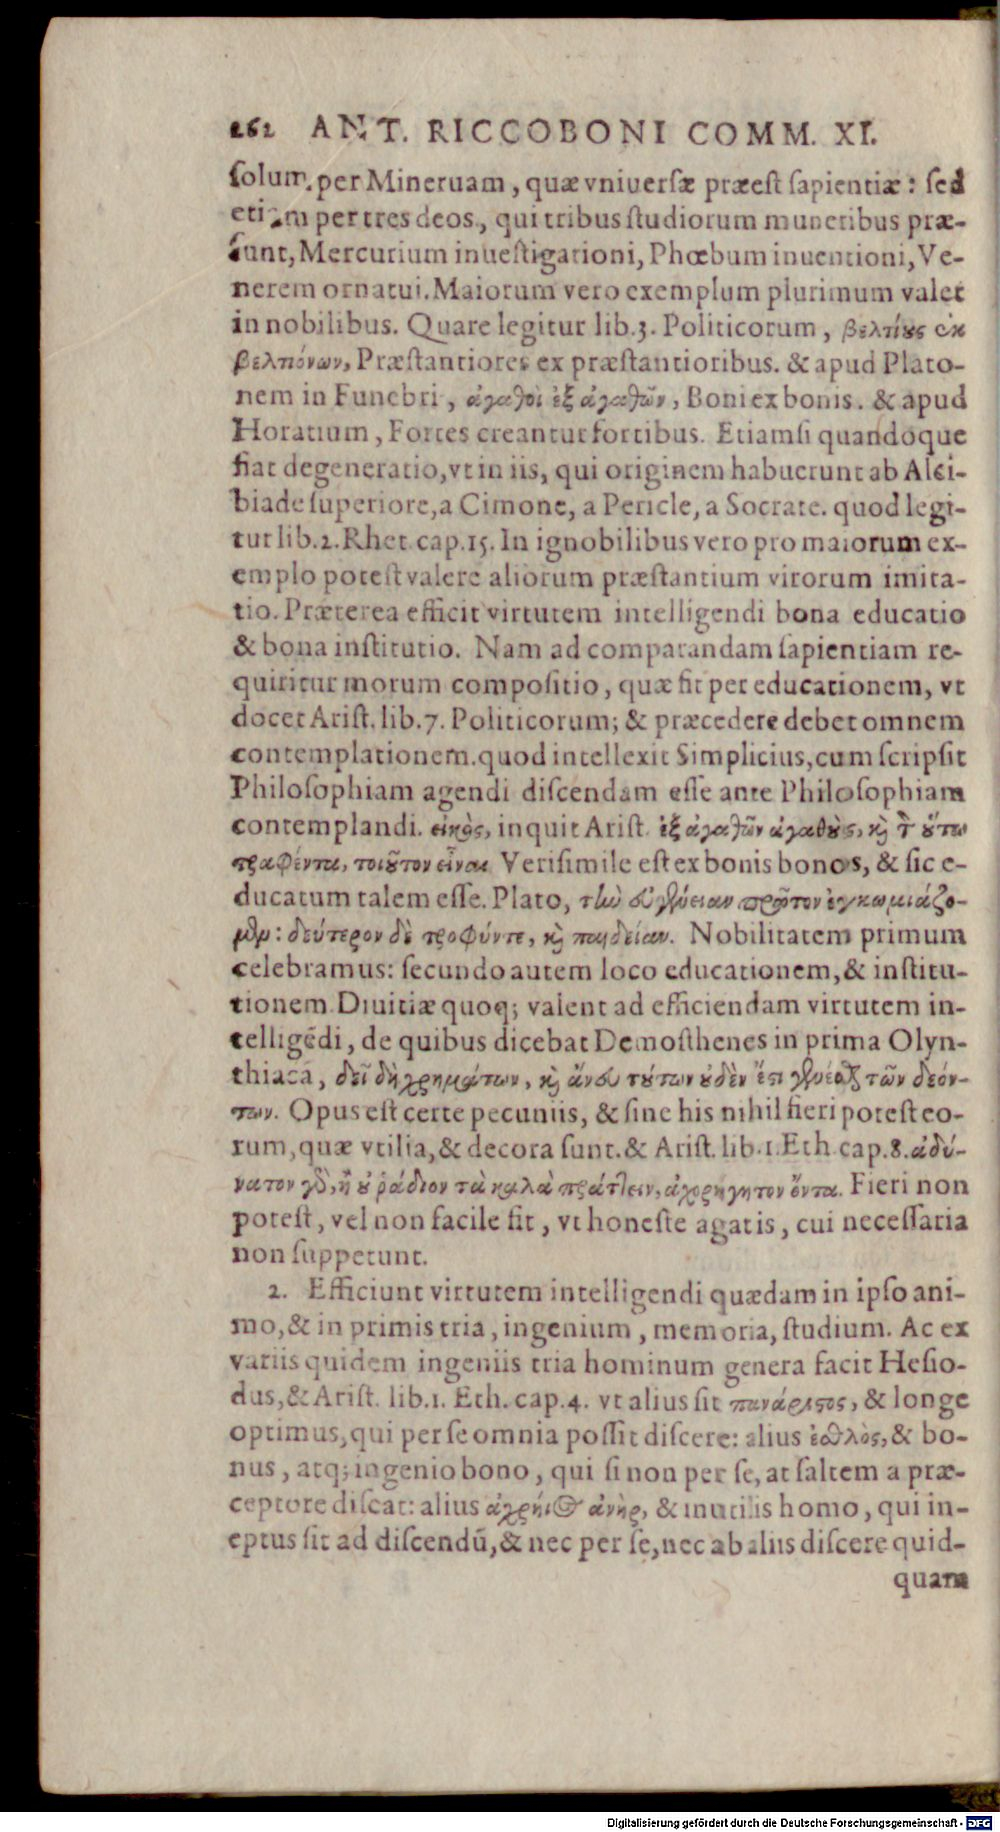 262 ANT. RICCOBONI COMM. XI.
ſolum per Mineruam, quæ vniuerſæ præeſt ſapientiæ: ſed
etiam per tres deos, qui tribus ſtudiorum muneribus præ-
ſunt, Mercurium inueſtigationi, Phœbum inuentioni, Ve-
nerem ornatui. Maiorum vero exemplum plurimum valet
in nobilibus. Quare legitur lib.3. Politicorum, βελτίȣς ἐκ
βελτιόνων, Præſtantiores ex præſtantioribus. & apud Plato-
nem in Funebri, ἀγαθοὶ ἐξ ἀγαθῶν, Boni ex bonis. & apud
Horatium, Fortes creantur fortibus. Etiamſi quandoque
fiat degeneratio, vt in iis, qui originem habuerunt ab Alci-
biade ſuperiore, a Cimone, a Pericle, a Socrate. quod legi-
tur lib.2. Rhet. cap.15. In ignobilibus vero pro maiorum ex-
emplo poteſt valere aliorum præſtantium virorum imita-
tio. Præterea efficit virtutem intelligendi bona educatio
& bona inſtitutio. Nam ad comparandam ſapientiam re-
quiritur morum compoſitio, quæ fit per educationem, vt
docet Ariſt. lib.7. Politicorum; & præcedere debet omnem
contemplationem. quod intellexit Simplicius, cum ſcripſit
Philoſophiam agendi diſcendam eſſe ante Philoſophiam
contemplandi. εἰκὸς, inquit Ariſt. ἐξ ἀγαθῶν ἀγαθȣ̀ς, κὶ τ̀ ȣ̔́τω
τραφέντα, τοιȣ͂τον εἶναι. Veriſimile eſt ex bonis bonos, & ſic e-
ducatum talem eſſe. Plato, τἠν εὐγένειαν πρῶτον ἐγκωμιάζο-
μϟμ: δεύτερον δὲ τροφήν τε, κὶ παιδείαν. Nobilitatem primum
celebramus: ſecundo autem loco educationem, & inſtitu-
tionem. Diuitiæ quoq; valent ad efficiendam virtutem in-
telligēdi, de quibus dicebat Demoſthenes in prima Olyn-
thiaca, δεῖ δὴ χρημάτων, κὶ ἄνευ τȣ́των ȣ̓δὲν ἔστι γενέσθαι τῶν δεόν-
των. Opus eſt certe pecuniis, & ſine his nihil fieri poteſt eo-
rum, quæ vtilia, & decora ſunt. & Ariſt. lib.1. Eth. cap.8. ἀδύ-
νατον γὸ, ἢ ȣ̓ ῥάδιον τὰ καλὰ πράττειν, ἀχορήγητον ὄντα. Fieri non
poteſt, vel non facile fit, vt honeſte agat is, cui neceſſaria
non ſuppetunt.
2. Efficiunt virtutem intelligendi quædam in ipſo ani-
mo, & in primis tria, ingenium, memoria, ſtudium. Ac ex
variis quidem ingeniis tria hominum genera facit Heſio-
dus, & Ariſt. lib.1. Eth. cap.4. vt alius ſit πανάριστος, & longe
optimus, qui per ſe omnia poſſit diſcere: alius ἐσθλὸς, & bo-
nus, atq; ingenio bono, qui ſi non per ſe, at ſaltem a præ-
ceptore diſcat: alius ἀχρήιος ἀνὴρ, & inutilis homo, qui in-
eptus ſit ad diſcendū, & nec per ſe, nec ab aliis diſcere quid-
quam
Digitalisierung gefördert durch die Deutsche Forschungsgemeinschaft - DFG